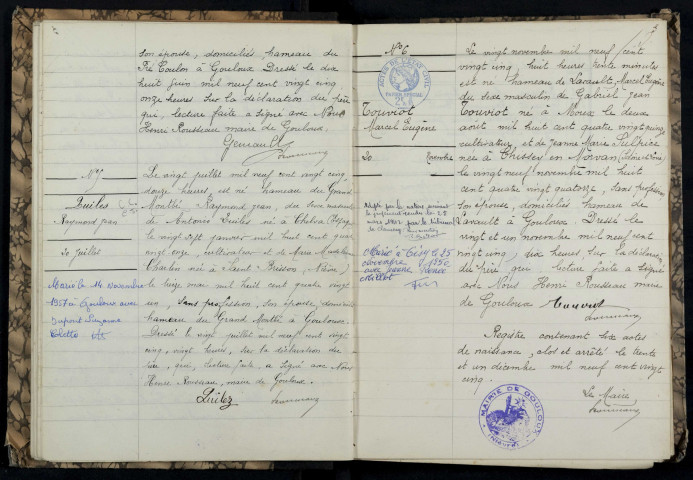 son épouse, domiciliés hameau du
Pré Coulon à Gouloux Dressé le dix
huit juin mil neuf cent vingt cinq
onze heures, sur la déclaration du père
que, lecture faite a signé avec Nous
Henri Rousseau maire de Gouloux.
N° 5
Quilez
Raymond Jean
20 Juillet
Marié le 14 Novembre
1957 à Gouloux avec
Dupont Suzanne
Colette
Le vingt juillet mil neuf cent vingt cinq,
douze heures, est né hameau du Grand
Monthé, Raymond Jean, du sexe masculin
de Antonio Quilez né à Chelva (Espagne)
le vingt sept janvier mil huit cent quatre
vingt onze, cultivateur et de Marie Madeleine
Charlin née à Saint Brisson, (Nièvre)
le seize mai mil huit cent quatre vingt
sans profession, son épouse, domiciliés
hameau du Grand Monthé à Gouloux.
Dressé le vingt juillet mil neuf cent vingt
cinq, vingt heures, sur la déclaration du
père, qui, lecture faite, a signé avec Nous
Henri Rousseau, maire de Gouloux.
Quilez
N° 6
Touviot
Marcel Eugène
20 Novembre
Marié à le 25
novembre 1950
avec
Le vingt novembre mil neuf cent
vingt cinq huit heures trente minutes
est né hameau de Lavault, Marcel Eugène
du sexe masculin de Gabriel Jean
Touviot né à Moux le deux
août mil huit cent quatre vingt
cultivateur, et de Jeanne Marie Sulpice
née à Chissey en Morvan, (Saône et Loire)
le vingt neuf novembre mil huit
cent quatre vingt quatorze, sans profession
son épouse, domiciliés hameau de
Lavault à Gouloux. Dressé le
vingt et un novembre mil neuf cent
vingt cinq, dix heures, sur la déclaration
du père qui, lecture faite a signé
avec Nous Henri Rousseau maire
de Gouloux Touviot
Registre contenant six actes
de naissance, clos et arrêté le trente
et un décembre mil neuf cent vingt
cinq.
Le Maire
MAIRIE DE GOULOUX
(NIÈVRE)